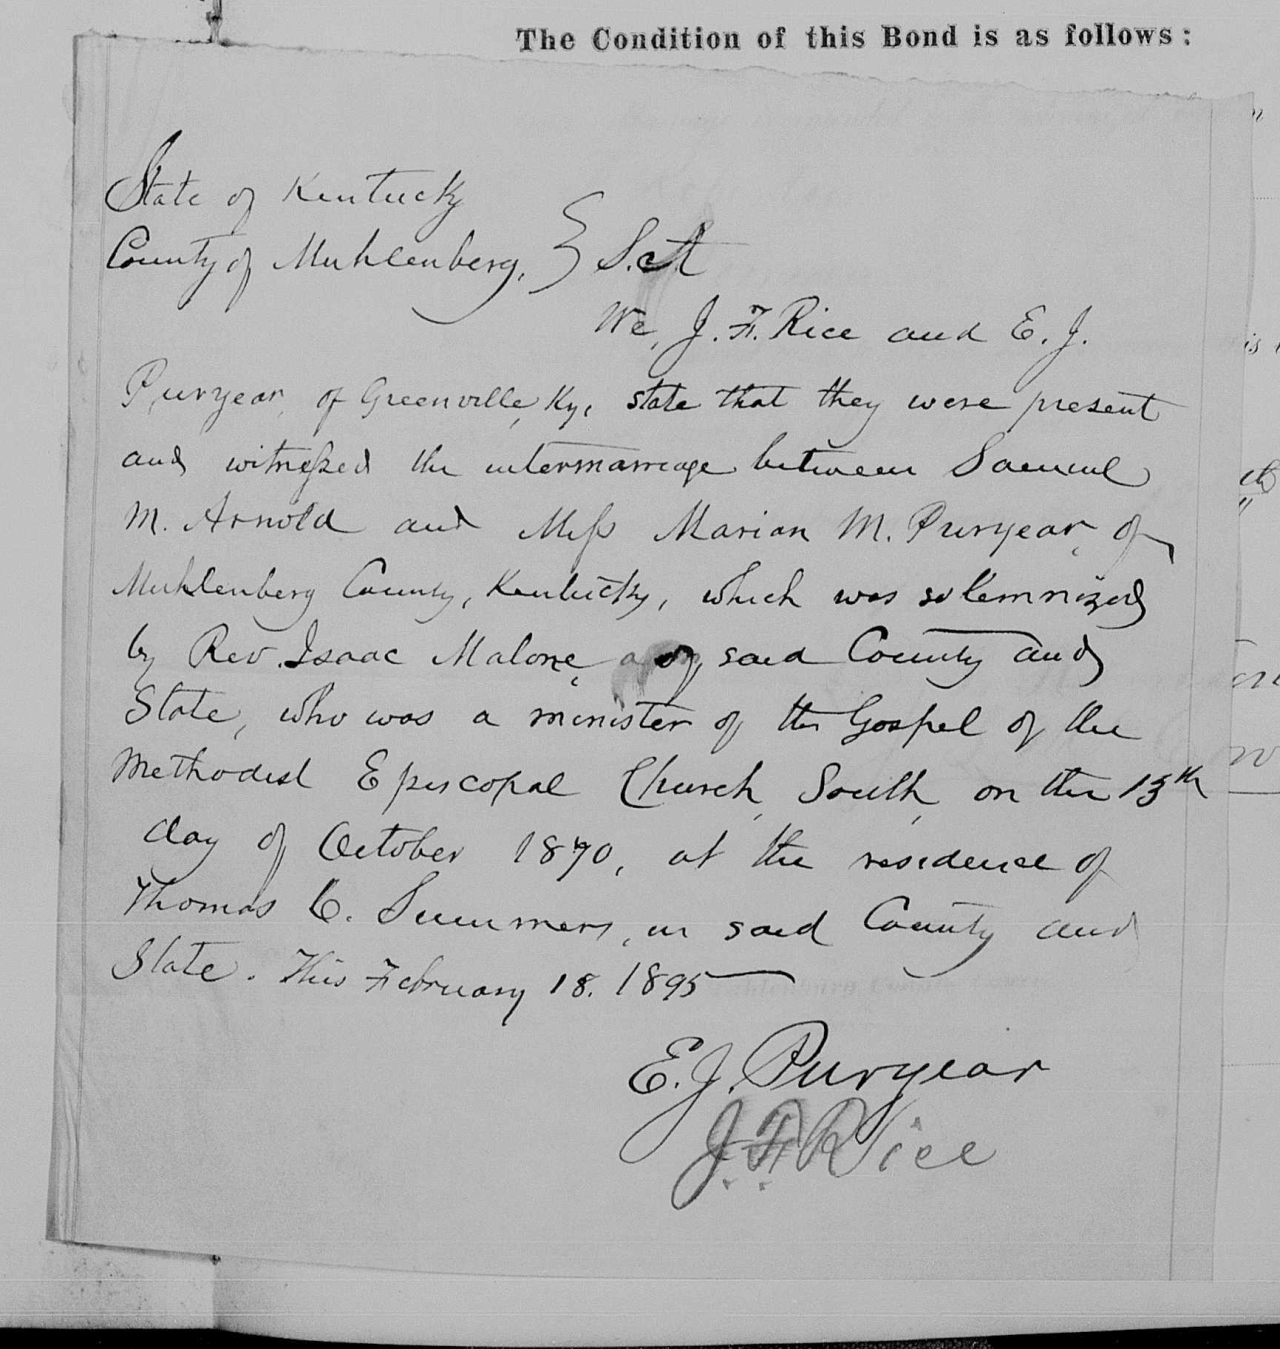 The Condition of this Bond is as follows:
State of Kentucky
County of Muhlenberg, } S.ct
We, J. F. Rice and E. J.
Puryear, of Greenville, Ky, state that they were present
and witnessed the intermarriage between Samuel
M. Arnold and Miss Marian M. Puryear, of
Muhlenberg County, Kentucky, which was solemnized
by Rev. Isaac Malone, of said County and
State, who was a minister of the Gospel of the
Methodist Episcopal Church, South, on the 13th
day of October 1870, at the residence of
Thomas C. Summers, in said County and
State. This February 18. 1895
E. J. Puryear
J. F. Rice